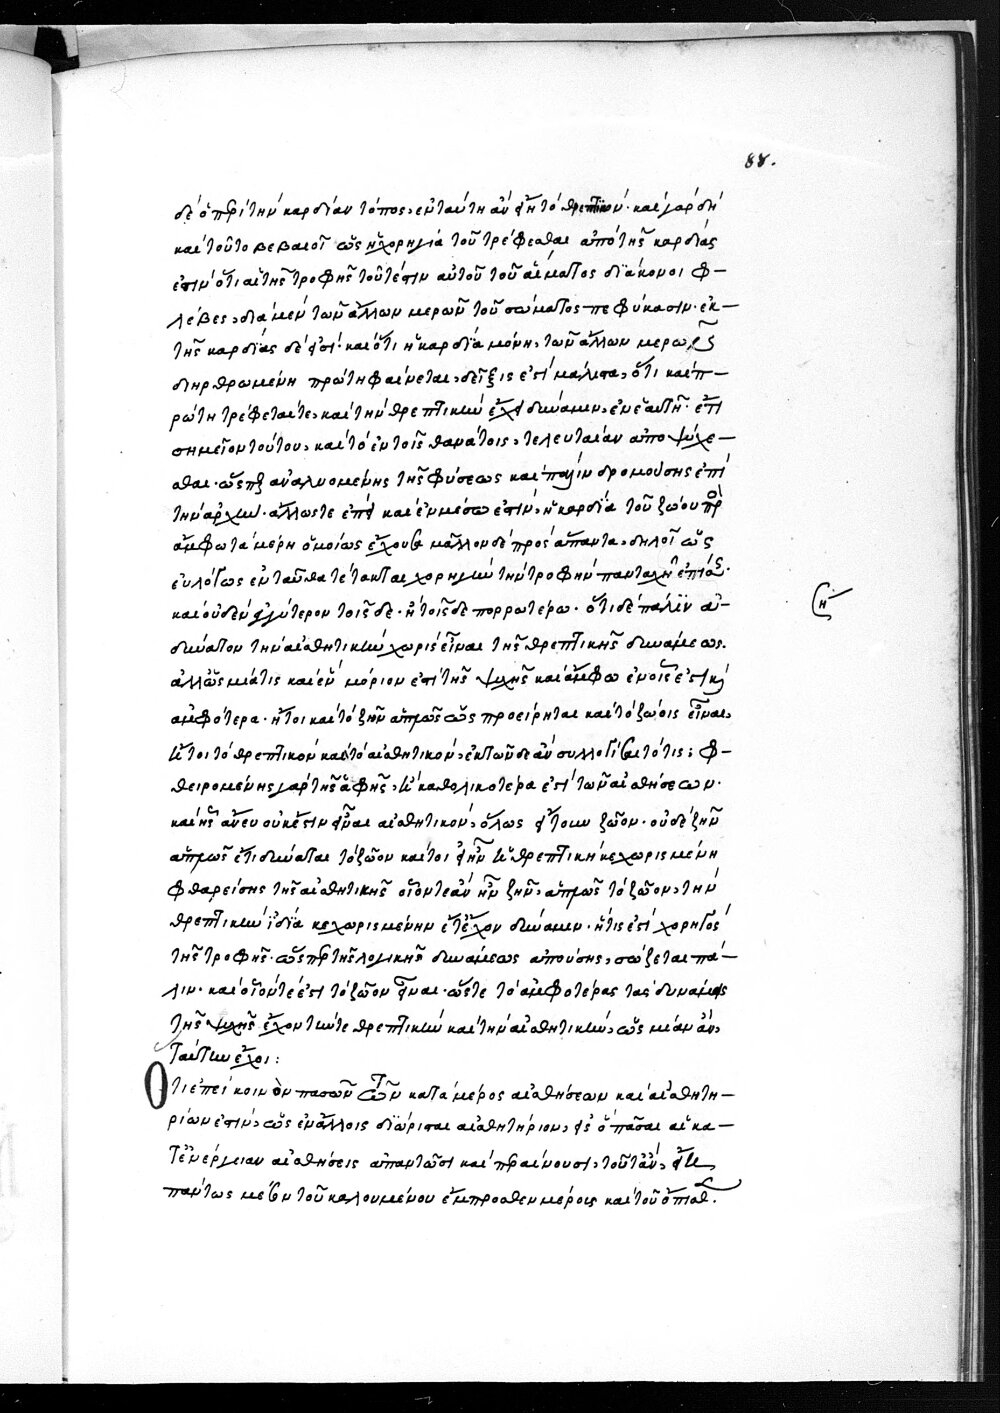 88.
δὲ ὁ περὶ τὴν καρδίαν τόπος, ἐν ταύτη ἂν εἴη τὸ θρεπτικόν· καὶ γὰρ δὴ
καὶ τοῦτο βεβαιοῖ ὡς ἡ χορηγία τοῦ τρέφεσθαι ἀπὸ τῆς καρδίας
ἐστὶν ὅτι αἱ τῆς τροφῆς τουτέστιν αὐτοῦ τοῦ αἵματος διάκονοι φ–
λέβες, διὰ μὲν τῶν ἄλλων μερῶν τοῦ σώματος πεφύκασιν· ἐκ–
τῆς καρδίας δέ εἰσί· καὶ ὅτι ἡ καρδία μόνη, τῶν ἄλλων μερῶν
διηρθρωμένη πρώτη φαίνεται, δεῖξις ἐστὶ μάλιστα, ὅτι καὶ π–
ρώτη τρέφεταί τε, καὶ τὴν θρεπτικὴν ἔχει δύναμιν, ἐν ἑαυτῆ· ἔτι
σημεῖον τούτου, καὶ τὸ ἐν τοῖς θανάτοις, τελευταίαν ἀποψύχε–
σθαι· ὥσπερ ἀναλυομένης τῆς φύσεως καὶ παλινδρομούσης ἐπὶ
τὴν ἀρχήν· ἄλλωστε ἐπεὶ καὶ ἐν μέσω ἐστὶν, ἡ καρδία τοῦ ζώου πρὸς
ἄμφω τὰ μέρη ὁμοίως ἔχουσα μᾶλλον δὲ πρὸς ἅπαντα, δηλοῖ ὡς
εὐλόγως ἐνταῦθα τέτακται χορηγεῖν τὴν τροφὴν πανταχῆ ἐπίσης·
καὶ οὐδὲν ἐγγύτερον τοῖσδε· ἢ τοῖσδε πορρωτέρω· ὅτι δὲ πάλιν ἀ–
δύνατον τὴν αἰσθητικὴν χωρὶς εἶναι τῆς θρεπτικῆς δυνάμεως.
ἀλλ' ὡς μία τις καὶ ἓν μόριον ἐπὶ τῆς ψυχῆς καὶ ἄμφω ἐν οἷς ἐστὶ καὶ
ἀμφότερα· ἤτοι καὶ τὸ ζῆν ἁπλῶς ὡς προείρηται καὶ τὸ ζώοις εἶναι,
ἤτοι τὸ θρεπτικὸν καὶ τὸ αἰσθητικὸν, ἐκ τῶνδε ἂν συλλογίσαιτό τις; φ–
θειρομένης γὰρ τῆς ἁφῆς, ἡ καθολικοτέρα ἐστὶ τῶν αἰσθήσεων·
καὶ ἧς ἄνευ οὐκ ἔστιν εἶναι αἰσθητικὸν, ὅλως ἤτουν ζῶον· οὐδὲ ζῆν
ἁπλῶς ἔτι δύναται τὸ ζῶον καίτοι εἰ ἦν ἡ θρεπτικὴ κεχωρισμένη
φθαρείσης τῆς αἰσθητικῆς οἷόν τε ἂν ἦν ζῆν, ἁπλῶς τὸ ζῶον, τὴν
θρεπτικὴν ἰδία κεχωρισμένην ἔτι ἔχον δύναμιν· ἥτις ἐστὶ χορηγὸς
τῆς τροφῆς· ὥσπερ τῆς λογικῆς δυνάμεως ἀπούσης, σώζεται πά–
λιν· καὶ οἷόν τέ ἐστι τὸ ζῶον εἶναι· ὥστε τὸ ἀμφοτέρας τὰς δυνάμεις
τῆς ψυχῆς ἔχον τήν τε θρεπτικὴν καὶ τὴν αἰσθητικὴν, ὡς μίαν ἂν,
ταύτην ἔχοι:
Ὅτι ἐπεὶ κοινὸν πασῶν τῶν κατὰ μέρος αἰσθήσεων καὶ αἰσθητη–
ρίων ἐστὶν, ὡς ἐν ἄλλοις διώρισται αἰσθητήριον, εἰς ὃ πᾶσαι αἱ κα–
τ' ἐνέργειαν αἰσθήσεις ἀπαντῶσι καὶ περαίνουσι, τοῦτ' ἂν, εἴη
πάντως μέσον τοῦ καλουμένου ἔμπροσθεν μέρους καὶ τοῦ ὄπισθεν.